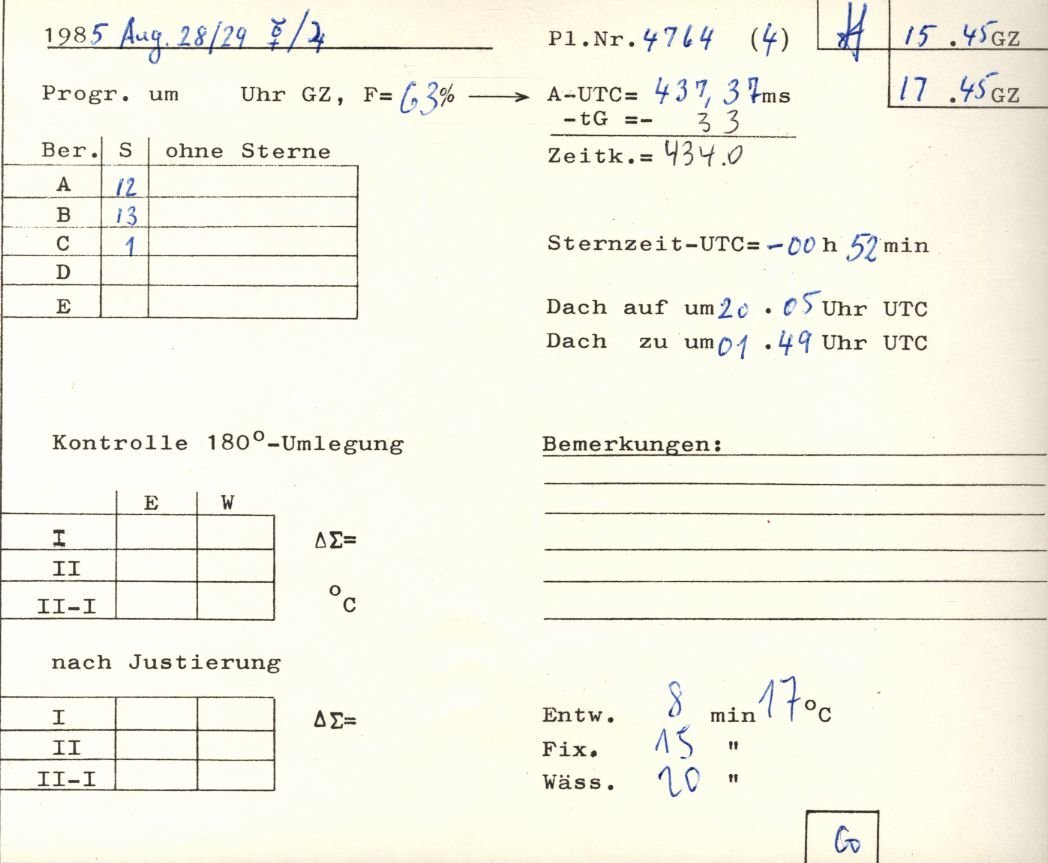 1985 Aug. 28/29 ☿/♃
Pl.Nr. 4764 (4)
15 .45 GZ
17 .45 GZ
Progr. um Uhr GZ, F= 63% → A-UTC= 437,37 ms
-tG =- 3 3
Zeitk.= 434.0
Ber. S ohne Sterne
A 12
B 13
C 1
D
E
Sternzeit-UTC= -00 h 52 min
Dach auf um 20 . 05 Uhr UTC
Dach zu um 01 . 49 Uhr UTC
Kontrolle 180°-Umlegung
E W
I ΔΣ=
II
II-I °C
Bemerkungen:
nach Justierung
I ΔΣ=
II
II-I
Entw. 8 min 17 °C
Fix. 15 "
Wäss. 20 "
Go